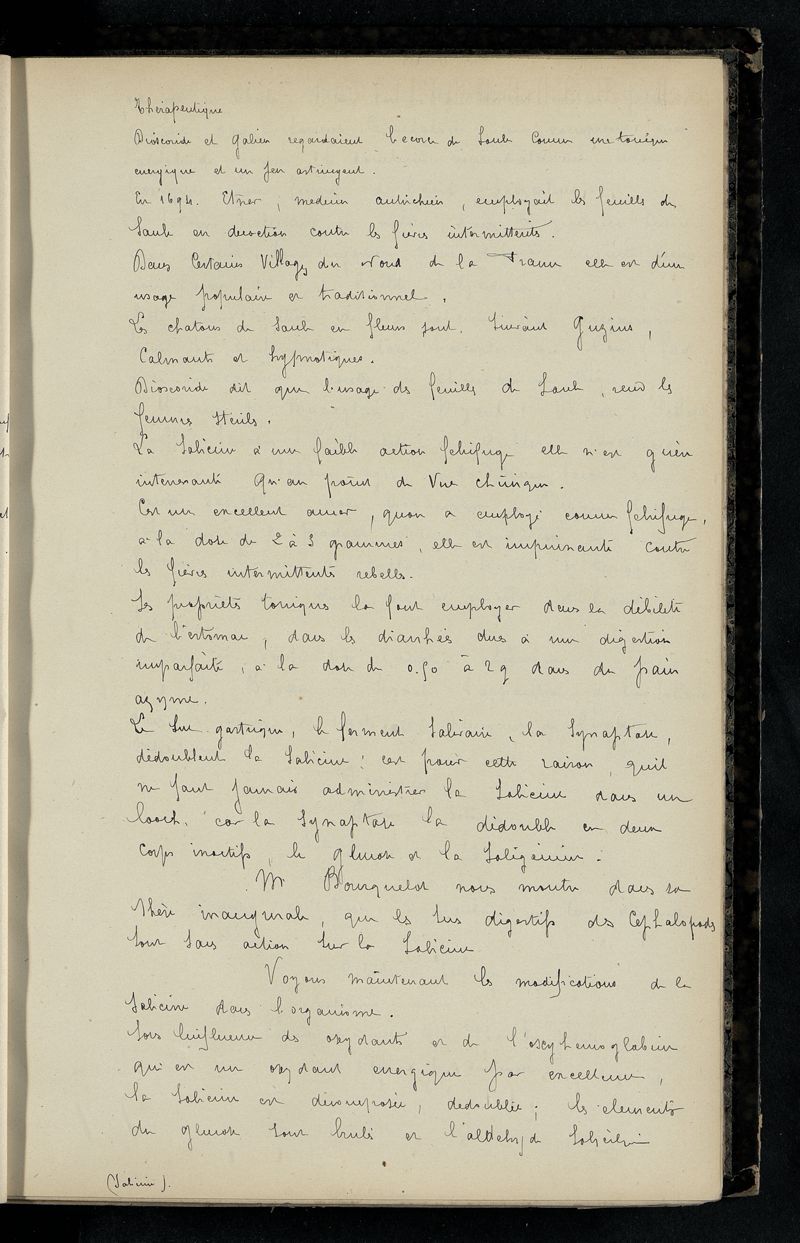 Thérapeutique
Dioscoride et Galien regardaient l'ecorce de Saule comme un tonique
energique et un peu astringent.
En 1694. Etner, medecin autrichien, employait les feuilles de
Saule en decoction contre les fièvres intermittents.
Dans Certains Villages du Nord de la France elle est d'un
usage populaire et traditionnel.
Les chatons de Saule en fleurs sont, suivant
Calmants et hypnotiques.
Dioscoride dit que l'usage des feuilles de Saule, rend les
femmes stériles.
La Salicine a une faible action febrifuge elle n'est guère
interessante qu'au point de Vue chimique.
C'est un excellent amer, quon a employé comme febrifuge,
a la dose de 2 à 3 grammes, elle est impuissante contre
les fièvres intermittents rebelles.
Ses propriétés toniques la font employer dans la débilité
de l'estomac, dans les diarrhées dues à une digestion
imparfaite, a la dose de 0.50 à 2g dans du pain
azyme.
Le Suc gastrique, le ferment Salivaire, la Synaptase,
dédoublent la Salicine; cest pour cette raison, quil
ne faut jamais administrer la Salicine dans un
looch, car la Synaptase la dédouble en deux
Corps inactifs, le glucose et la Saligénine.
Mr Bourquelot nous montre dans sa
thèse inaugurale, que les sucs digestifs des Cephalopodes
sont sans action sur la Salicine
Voyons maintenant les modifications de la
Salicine dans l'organisme.
Sous linfluence des oxydants et de l'oxyhemoglobine
qui est un oxydant energique par excellence,
la Salicine est décomposée, dedoublée; les elements
du glucose sont brulés et l'aldehyde Salicilique
(Salicine).